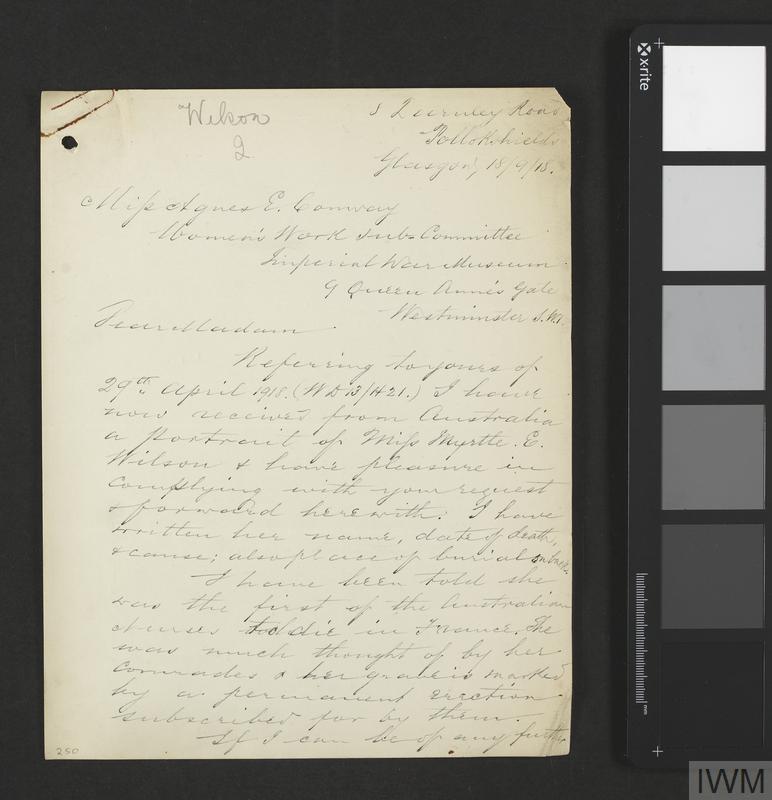 Wilson
2
Road
Pollokshields
Glasgow, 18/9/18.
Miss Agnes E. Conway
Women's Work Sub-Committee
Imperial War Museum
9 Queen Anne's Gate
Westminster S.W.1.
Dear Madam
Referring to yours of
29th April 1918. (WD13/H21.) I have
now received from Australia
a portrait of Miss Myrtle. E.
Wilson & have pleasure in
complying with your request
& forward herewith: I have
written her name, date of death,
& cause; also place of burial on back.
I have been told she
was the first of the Australian
Nurses to die in France. She
was much thought of by her
comrades & her grave is marked
by a permanent erection
subscribed for by them.
If I can be of any further
250
x-rite
mm
IWM